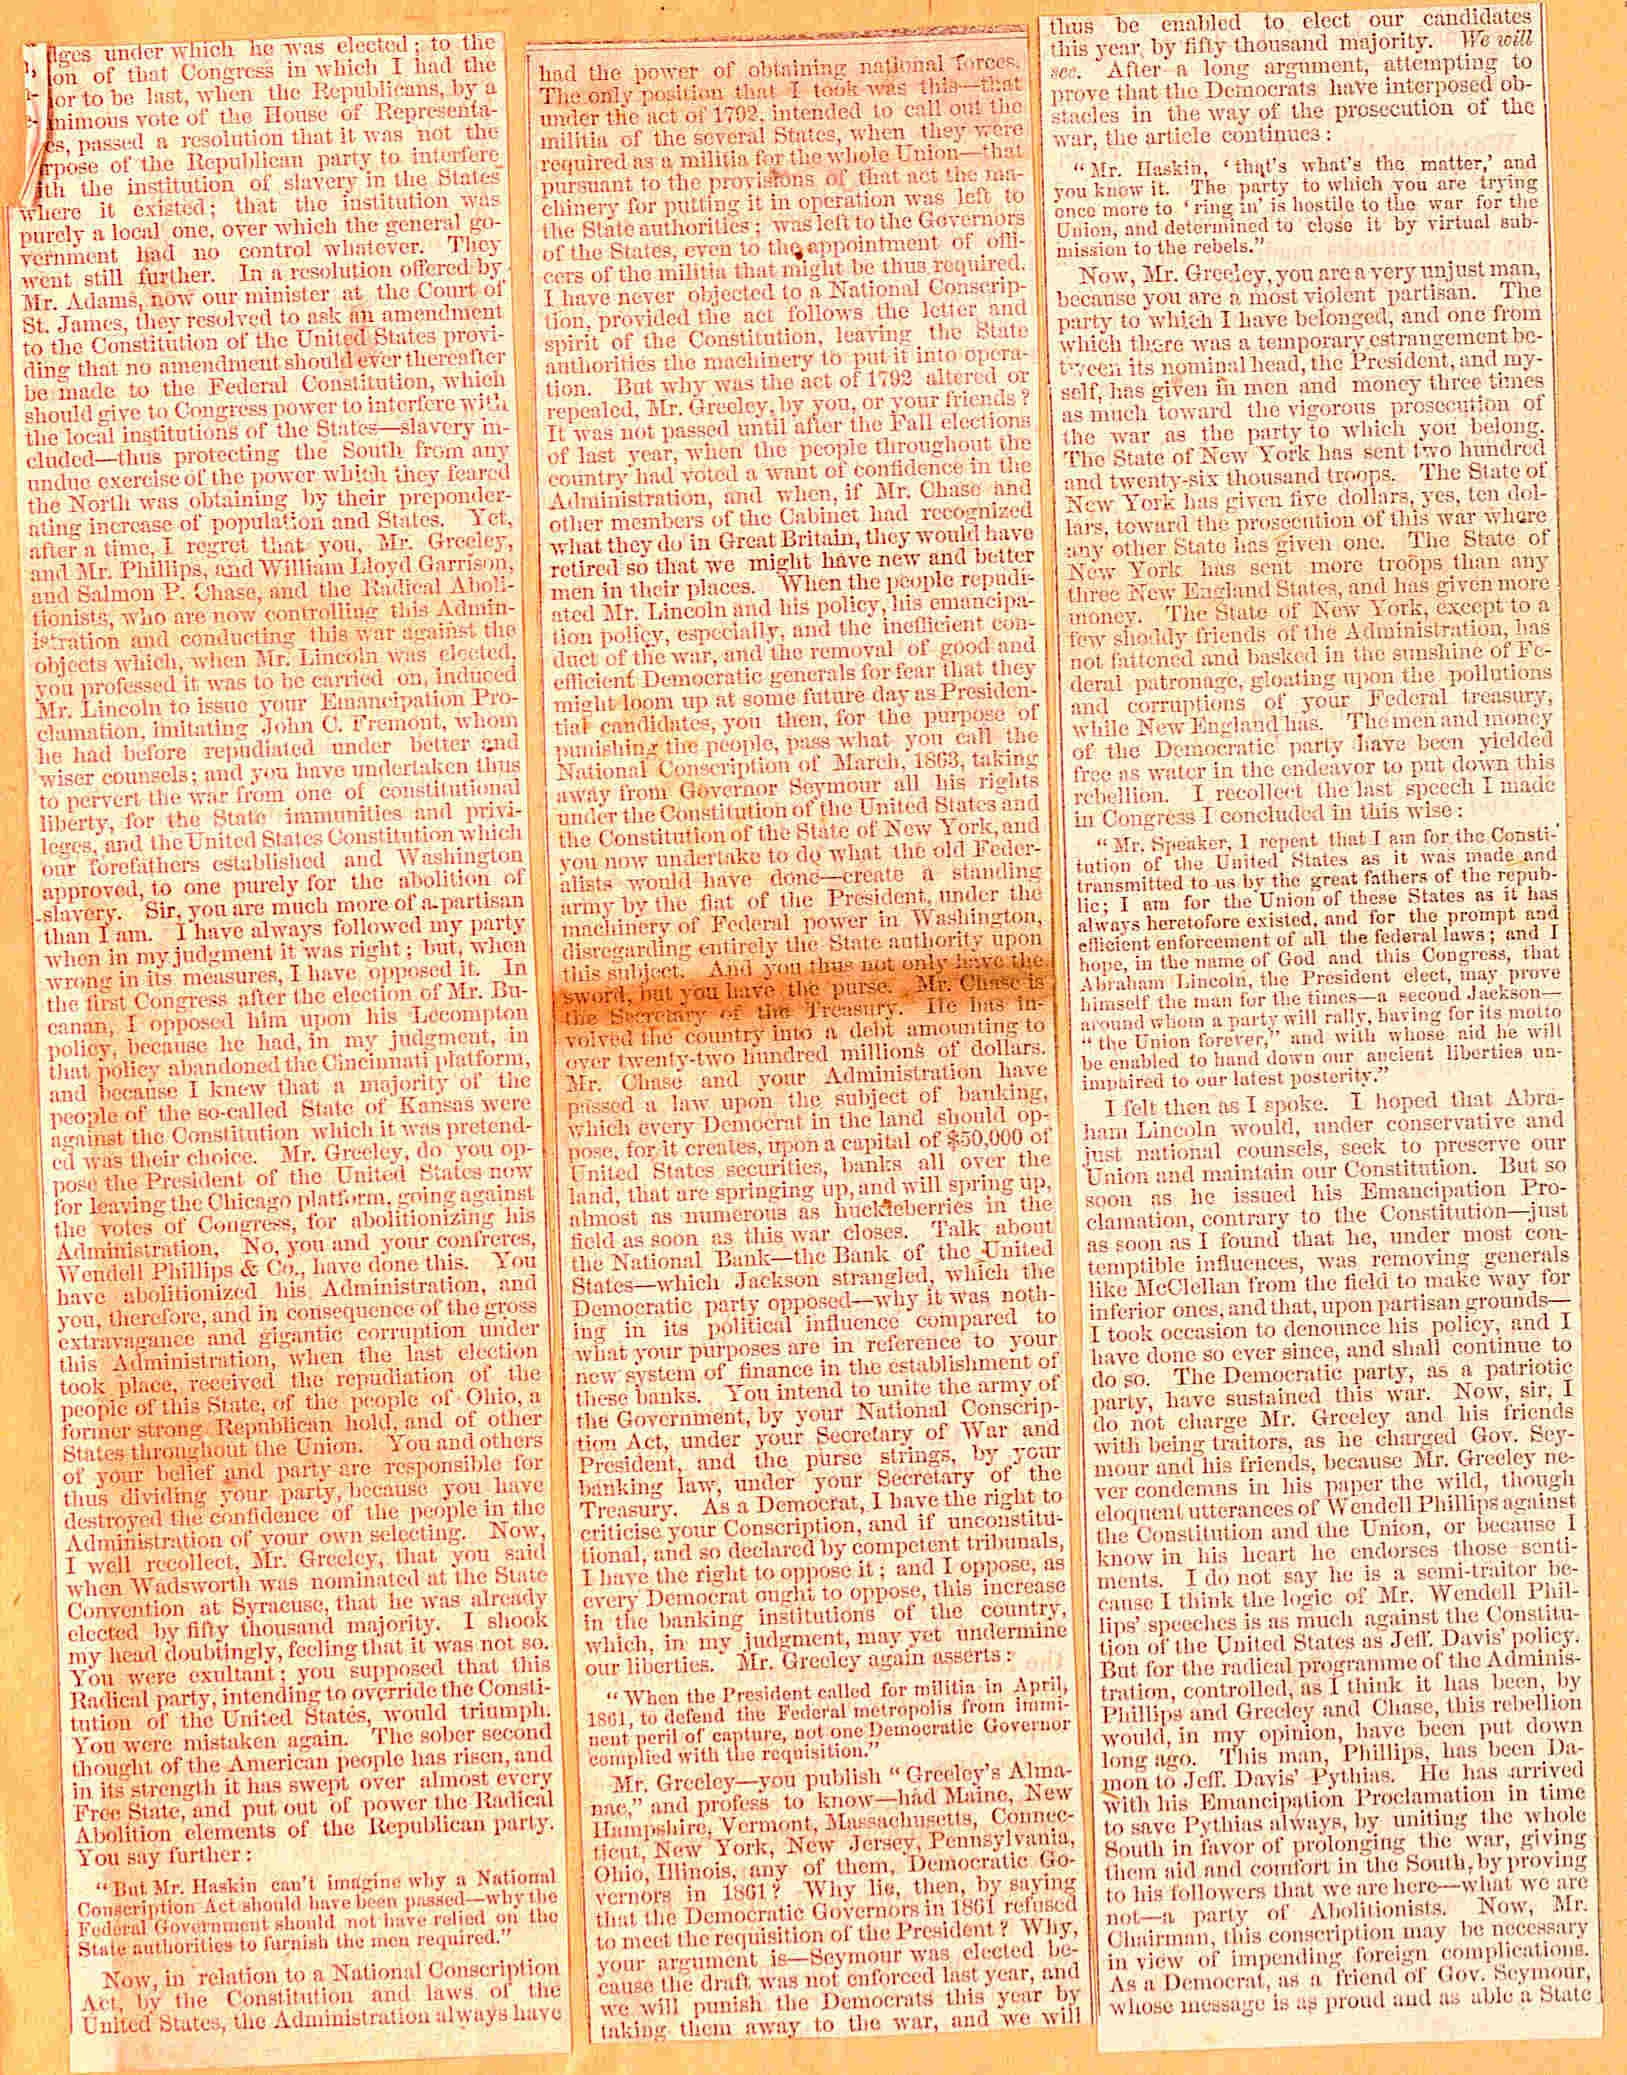 dges under which he was elected; to the
on of that Congress in which I had the
or to be last, when the Republicans, by a
nimous vote of the House of Representa-
es, passed a resolution that it was not the
rpose of the Republican party to interfere
ith the institution of slavery in the States
where it existed; that the institution was
purely a local one, over which the general go-
vernment had no control whatever. They
went still further. In a resolution offered by
Mr. Adams, now our minister at the Court of
St. James, they resolved to ask an amendment
to the Constitution of the United States provi-
ding that no amendment should ever thereafter
be made to the Federal Constitution, which
should give to Congress power to interfere with
the local institutions of the States—slavery in-
cluded—thus protecting the South from any
undue exercise of the power which they feared
the North was obtaining by their preponder-
ating increase of population and States. Yet,
after a time, I regret that you, Mr. Greeley,
and Mr. Phillips, and William Lloyd Garrison,
and Salmon P. Chase, and the Radical Aboli-
tionists, who are now controlling this Admin-
istration and conducting this war against the
objects which, when Mr. Lincoln was elected,
you professed it was to be carried on, induced
Mr. Lincoln to issue your Emancipation Pro-
clamation, imitating John C. Fremont, whom
he had before repudiated under better and
wiser counsels; and you have undertaken thus
to pervert the war from one of constitutional
liberty, for the State immunities and privi-
leges, and the United States Constitution which
our forefathers established and Washington
approved, to one purely for the abolition of
slavery. Sir, you are much more of a partisan
than I am. I have always followed my party
when in my judgment it was right; but, when
wrong in its measures, I have opposed it. In
the first Congress after the election of Mr. Bu-
canan, I opposed him upon his Lecompton
policy, because he had, in my judgment, in
that policy abandoned the Cincinnati platform,
and because I knew that a majority of the
people of the so-called State of Kansas were
against the Constitution which it was pretend-
ed was their choice. Mr. Greeley, do you op-
pose the President of the United States now
for leaving the Chicago platform, going against
the votes of Congress, for abolitionizing his
Administration. No, you and your confreres,
Wendell Phillips & Co., have done this. You
have abolitionized his Administration, and
you, therefore, and in consequence of the gross
extravagance and gigantic corruption under
this Administration, when the last election
took place, received the repudiation of the
people of this State, of the people of Ohio, a
former strong Republican hold, and of other
States throughout the Union. You and others
of your belief and party are responsible for
thus dividing your party, because you have
destroyed the confidence of the people in the
Administration of your own selecting. Now,
I well recollect, Mr. Greeley, that you said
when Wadsworth was nominated at the State
Convention at Syracuse, that he was already
elected by fifty thousand majority. I shook
my head doubtingly, feeling that it was not so.
You were exultant; you supposed that this
Radical party, intending to override the Consti-
tution of the United States, would triumph.
You were mistaken again. The sober second
thought of the American people has risen, and
in its strength it has swept over almost every
Free State, and put out of power the Radical
Abolition elements of the Republican party.
You say further:
"But Mr. Haskin can't imagine why a National
Conscription Act should have been passed—why the
Federal Government should not have relied on the
State authorities to furnish the men required."
Now, in relation to a National Conscription
Act, by the Constitution and laws of the
United States, the Administration always have
had the power of obtaining national forces.
The only position that I took was this—that
under the act of 1792, intended to call out the
militia of the several States, when they were
required as a militia for the whole Union—that
pursuant to the provisions of that act the ma-
chinery for putting it in operation was left to
the State authorities; was left to the Governors
of the States, even to the appointment of offi-
cers of the militia that might be thus required.
I have never objected to a National Conscrip-
tion, provided the act follows the letter and
spirit of the Constitution, leaving the State
authorities the machinery to put it into opera-
tion. But why was the act of 1792 altered or
repealed, Mr. Greeley, by you, or your friends?
It was not passed until after the Fall elections
of last year, when the people throughout the
country had voted a want of confidence in the
Administration, and when, if Mr. Chase and
other members of the Cabinet had recognized
what they do in Great Britain, they would have
retired so that we might have new and better
men in their places. When the people repudi-
ated Mr. Lincoln and his policy, his emancipa-
tion policy, especially, and the inefficient con-
duct of the war, and the removal of good and
efficient Democratic generals for fear that they
might loom up at some future day as Presiden-
tial candidates, you then, for the purpose of
punishing the people, pass what you call the
National Conscription of March, 1863, taking
away from Governor Seymour all his rights
under the Constitution of the United States and
the Constitution of the State of New York, and
you now undertake to do what the old Feder-
alists would have done—create a standing
army by the fiat of the President, under the
machinery of Federal power in Washington,
disregarding entirely the State authority upon
this subject. And you thus not only have the
sword, but you have the purse. Mr. Chase is
the Secretary of the Treasury. He has in-
volved the country into a debt amounting to
over twenty-two hundred millions of dollars.
Mr. Chase and your Administration have
passed a law upon the subject of banking,
which every Democrat in the land should op-
pose, for it creates, upon a capital of $50,000 of
United States securities, banks all over the
land, that are springing up, and will spring up,
almost as numerous as huckleberries in the
field as soon as this war closes. Talk about
the National Bank—the Bank of the United
States—which Jackson strangled, which the
Democratic party opposed—why it was noth-
ing in its political influence compared to
what your purposes are in reference to your
new system of finance in the establishment of
these banks. You intend to unite the army of
the Government, by your National Conscrip-
tion Act, under your Secretary of War and
President, and the purse strings, by your
banking law, under your Secretary of the
Treasury. As a Democrat, I have the right to
criticise your Conscription, and if unconstitu-
tional, and so declared by competent tribunals,
I have the right to oppose it; and I oppose, as
every Democrat ought to oppose, this increase
in the banking institutions of the country,
which, in my judgment, may yet undermine
our liberties. Mr. Greeley again asserts:
"When the President called for militia in April,
1861, to defend the Federal metropolis from immi-
nent peril of capture, not one Democratic Governor
complied with the requisition."
Mr. Greeley—you publish "Greeley's Alma-
nac," and profess to know—had Maine, New
Hampshire, Vermont, Massachusetts, Connec-
ticut, New York, New Jersey, Pennsylvania,
Ohio, Illinois, any of them, Democratic Go-
vernors in 1861? Why lie, then, by saying
that the Democratic Governors in 1861 refused
to meet the requisition of the President? Why,
your argument is—Seymour was elected be-
cause the draft was not enforced last year, and
we will punish the Democrats this year by
taking them away to the war, and we will
thus be enabled to elect our candidates
this year by fifty thousand majority. We will
see. After a long argument, attempting to
prove that the Democrats have interposed ob-
stacles in the way of the prosecution of the
war, the article continues:
"Mr. Haskin, 'that's what's the matter,' and
you know it. The party to which you are trying
once more to 'ring in' is hostile to the war for the
Union, and determined to close it by virtual sub-
mission to the rebels."
Now, Mr. Greeley, you are a very unjust man,
because you are a most violent partisan. The
party to which I have belonged, and one from
which there was a temporary estrangement be-
tween its nominal head, the President, and my-
self, has given in men and money three times
as much toward the vigorous prosecution of
the war as the party to which you belong.
The State of New York has sent two hundred
and twenty-six thousand troops. The State of
New York has given five dollars, yes, ten dol-
lars, toward the prosecution of this war where
any other State has given one. The State of
New York has sent more troops than any
three New England States, and has given more
money. The State of New York, except to a
few shoddy friends of the Administration, has
not fattened and basked in the sunshine of Fe-
deral patronage, gloating upon the pollutions
and corruptions of your Federal treasury,
while New England has. The men and money
of the Democratic party have been yielded
free as water in the endeavor to put down this
rebellion. I recollect the last speech I made
in Congress I concluded in this wise:
"Mr. Speaker, I repeat that I am for the Consti-
tution of the United States as it was made and
transmitted to us by the great fathers of the repub-
lic; I am for the Union of these States as it has
always heretofore existed, and for the prompt and
efficient enforcement of all the federal laws; and I
hope, in the name of God and this Congress, that
Abraham Lincoln, the President elect, may prove
himself the man for the times—a second Jackson—
around whom a party will rally, having for its motto
"the Union forever," and with whose aid he will
be enabled to hand down our ancient liberties un-
impaired to our latest posterity."
I felt then as I spoke. I hoped that Abra-
ham Lincoln would, under conservative and
just national counsels, seek to preserve our
Union and maintain our Constitution. But so
soon as he issued his Emancipation Pro-
clamation, contrary to the Constitution—just
as soon as I found that he, under most con-
temptible influences, was removing generals
like McClellan from the field to make way for
inferior ones, and that, upon partisan grounds—
I took occasion to denounce his policy, and I
have done so ever since, and shall continue to
do so. The Democratic party, as a patriotic
party, have sustained this war. Now, sir, I
do not charge Mr. Greeley and his friends
with being traitors, as he charged Gov. Sey-
mour and his friends, because Mr. Greeley ne-
ver condemns in his paper the wild, though
eloquent utterances of Wendell Phillips against
the Constitution and the Union, or because I
know in his heart he endorses those senti-
ments. I do not say he is a semi-traitor be-
cause I think the logic of Mr. Wendell Phil-
lips' speeches is as much against the Constitu-
tion of the United States as Jeff. Davis' policy.
But for the radical programme of the Adminis-
tration, controlled, as I think it has been, by
Phillips and Greeley and Chase, this rebellion
would, in my opinion, have been put down
long ago. This man, Phillips, has been Da-
mon to Jeff. Davis' Pythias. He has arrived
with his Emancipation Proclamation in time
to save Pythias always, by uniting the whole
South in favor of prolonging the war, giving
them aid and comfort in the South, by proving
to his followers that we are here—what we are
not—a party of Abolitionists. Now, Mr.
Chairman, this conscription may be necessary
in view of impending foreign complications.
As a Democrat, as a friend of Gov. Seymour,
whose message is as proud and as able a State